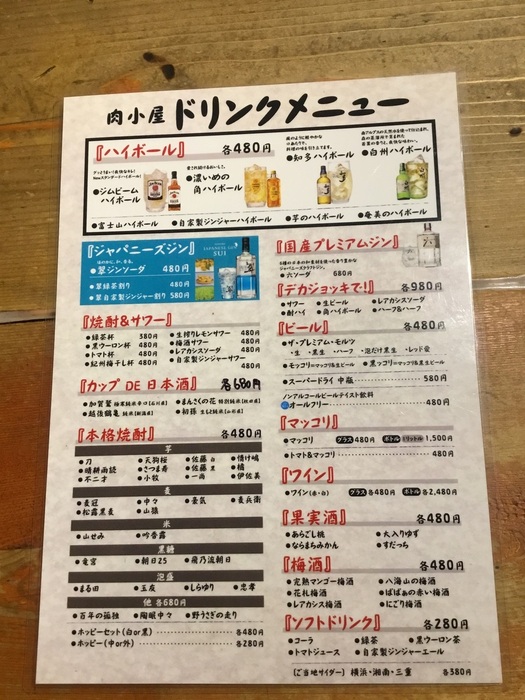 肉小屋 ドリンクメニュー
『ハイボール』 各480円
●ジムビームハイボール
●濃いめの角ハイボール
●知多ハイボール
●白州ハイボール
●富士山ハイボール ●自家製ジンジャーハイボール ●芋のハイボール ●奄美のハイボール
『ジャパニーズジン』
●翠ジンソーダ 480円
●翠緑茶割り 480円
●翠自家製ジンジャー割り 580円
JAPANESE GIN
SUI
『焼酎&サワー』
●緑茶杯 380円
●黒ウーロン杯 480円
●トマト杯 480円
●紀州梅干し杯 480円
●生搾りレモンサワー 480円
●梅酒サワー 480円
●レアカシスサワー 480円
●自家製ジンジャーサワー 480円
『カップDE日本酒』 各680円
●加賀鳶
●まんさくの花
●越後鶴亀
●初孫
『本格焼酎』 各480円
芋
●刀 ●天狗桜 ●佐藤 白 ●情け嶋
●晴耕雨読 ●さつま寿 ●佐藤 黒 ●橘
●不二才 ●小牧 ●一尚 ●伊佐美
麦
●麦冠 ●中々 ●壹氣 ●麦兵衛
●松露黒麦 ●山猿
米
●山せみ ●吟香露
黒糖
●竜宮 ●朝日25 ●飛乃流朝日
泡盛
●まる田 ●玉友 ●しらゆり ●忠孝
他 各680円
●百年の孤独 ●陶眠中々 ●野うさぎの走り
●ホッピーセット(白or黒) 各480円
●ホッピー(中or外) 各280円
『国産プレミアムジン』
6種の日本の和素材を使った香り豊かな
ジャパニーズクラフトジン。
●六ソーダ 680円
『デカジョッキで!』 各980円
●サワー ●生ビール ●レアカシスサワー
●酎ハイ ●角ハイボール ●ハーフ&ハーフ
『ビール』 各480円
●ザ・プレミアム・モルツ
・生 ・黒生 ・ハーフ ・泡だけ黒生 ・レッド愛
●モッコリ=マッコリ&生ビール ●黒ッコリ=マッコリ&黒生ビール
●スーパードライ 中瓶 580円
ノンアルコールビールテイスト飲料
オールフリー 480円
『マッコリ』
●マッコリ グラス 480円 ボトル 1,500円
●トマト&マッコリ 480円
『ワイン』
●ワイン(赤・白) グラス 各480円 ボトル 各2,480円
『果実酒』 各480円
●あらごし桃 ●大入りゆず
●ならまちみかん ●すだっち
『梅酒』 各480円
●完熟マンゴー梅酒 ●八海山の梅酒
●花札梅酒 ●ばばぁの赤い梅酒
●レアカシス梅酒 ●にごり梅酒
『ソフトドリンク』 各280円
●コーラ ●緑茶 ●黒ウーロン茶
●トマトジュース ●自家製ジンジャーエール
〔ご当地サイダー〕横浜・湘南・三重 各380円